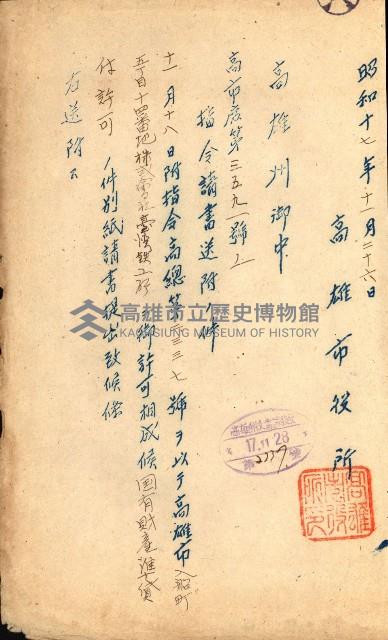 昭和十七年十一月二十六日
高雄市役所
高雄州御中
高市庶第三五九一號ノ
指令請書送附ノ件
十一月十八日附指令高總第 三三七號ヲ以テ高雄市入船町
五丁目十四番地株式會社臺灣鉄工所御許可相成候國有財產準貸
付許可ノ件別紙請書提出致候條
右送附ス
高雄市立歷史博物館
KAOHSIUNG MUSEUM OF HISTORY
17.11.28
第2337號